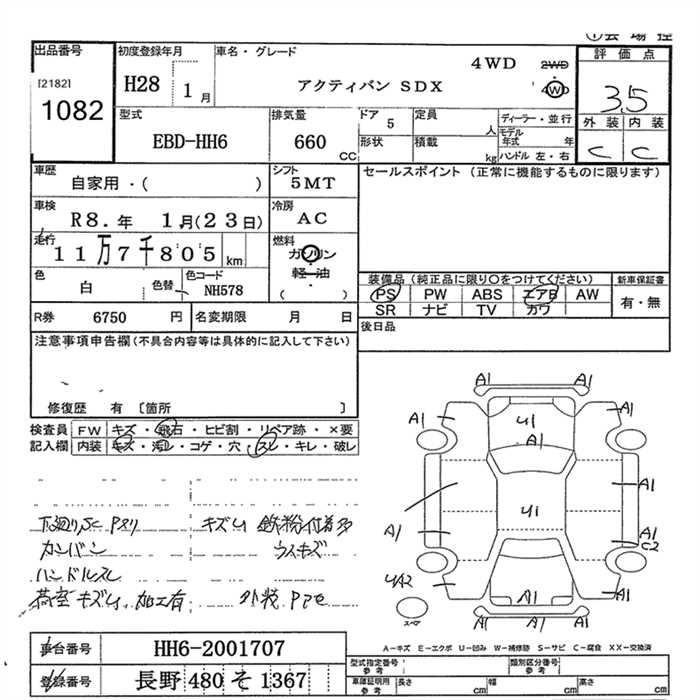 ①会場控
出品番号
[2182]
1082
初度登録年月
H28
1月
車名・グレード
アクティバン SDX
4WD
2WD
4WD
評価点
3.5
外装 内装
C C
型式
EBD-HH6
排気量
660
CC
ドア
5
定員
人
形状
積載
kg
ディーラー・並行
モデル年式 年
ハンドル 左・右
車歴
自家用・( )
シフト
5MT
セールスポイント (正常に機能するものに限ります)
車検
R8.年 1月(23日)
冷房
AC
走行
11万7千805km
燃料
ガソリン
軽油
( )
色
白
色替
色コード
NH578
装備品 (純正品に限り○をつけてください)
新車保証書
PS PW ABS エアB AW
SR ナビ TV カワ
有・無
R券 6750円
名変期限 月 日
後日品
注意事項申告欄(不具合内容等は具体的に記入して下さい)
修復歴 有 [箇所 ]
検査員記入欄
FW キズ・飛石・ヒビ割・リペア跡・×要
内装 キズ・汚レ・コゲ・穴・スレ・キレ・破レ
下廻りSC Pサリ
キズU 鉄粉付着多
カンバン
ウスキズ
ハンドルスレ
荷室キズU、加工有
A1 A1
A1 A1
U1
A1
A1
U1
A1
A1
C2
UA2
A1
A1 A1
スペア
A-キズ E-エクボ U-凹み W-補修跡 S-サビ C-腐食 XX-交換済
車台番号
HH6-2001707
登録番号
長野 480 そ 1367
型式指定番号
参考
類別区分番号
参考
車庫証明用
参考
長さ cm
幅 cm
高さ cm